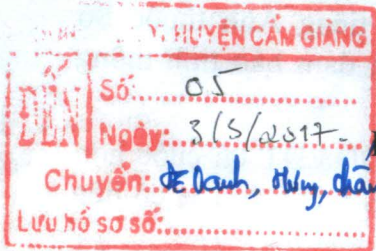 HUYỆN CẨM GIÀNG
ĐẾN
Số: 05
Ngày: 3/5/2017-
Chuyển: Danh,
Lưu hồ sơ số: